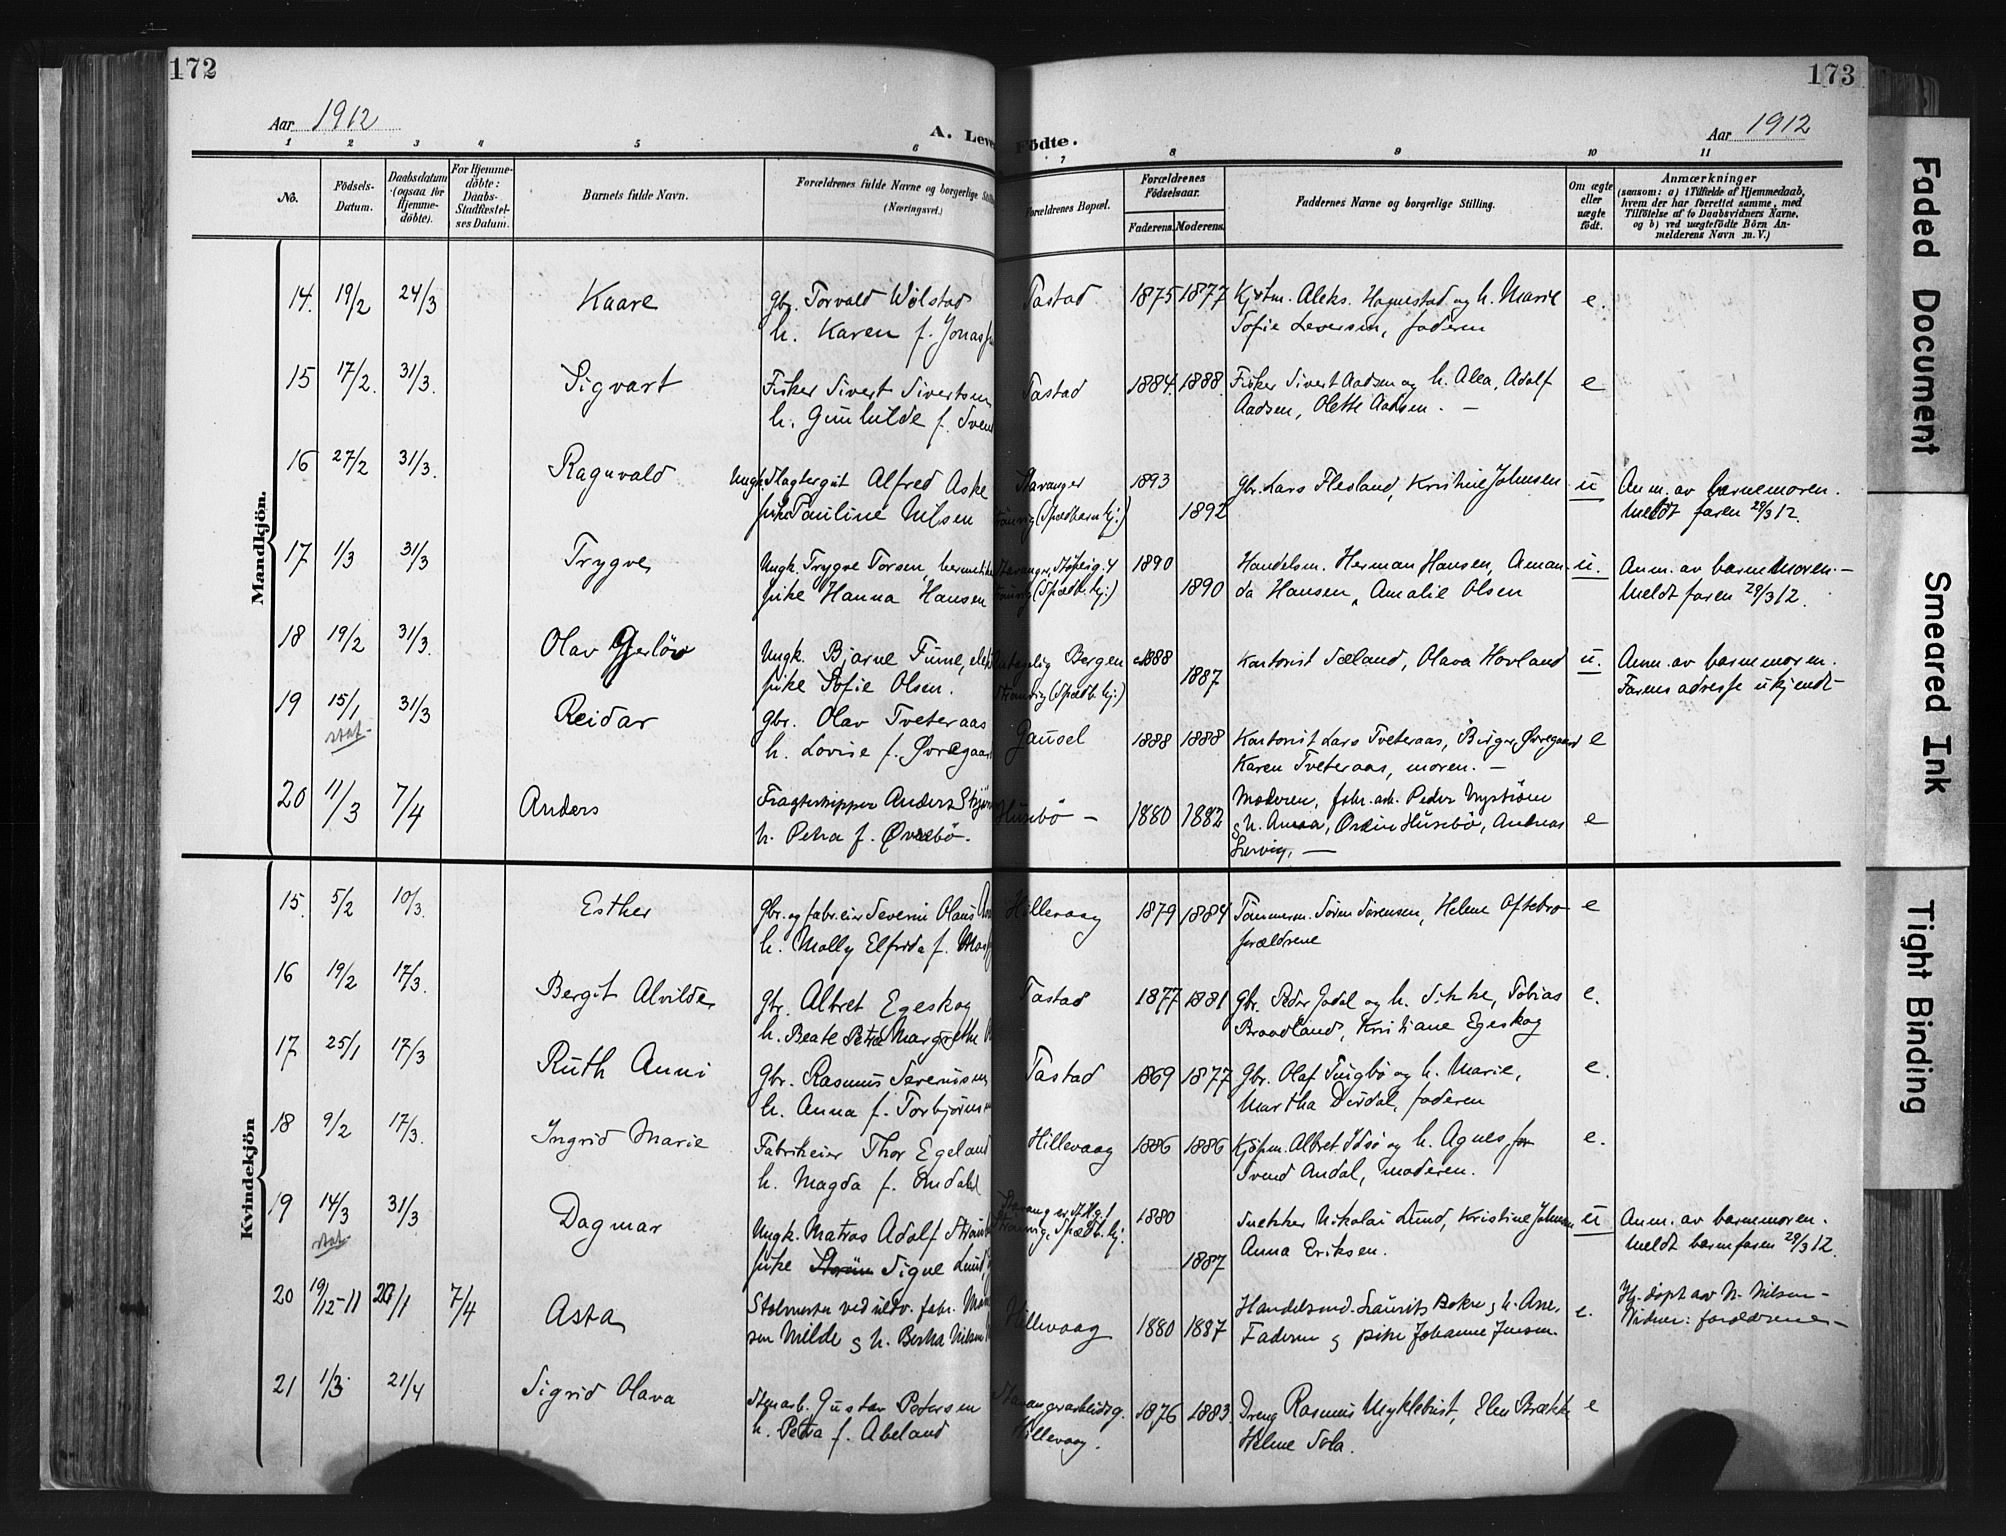 172
173
Aar 1912
A. Leve
Födte.
Aar 1912
1 2 3 4 5 6 7 8 9 10 11
No.
Födsels-Datum.
Daabsdatum (ogsaa for Hjemme-döbte).
For Hjemme-döbte: Daabs-Stadfæstel-ses Datum.
Barnets fulde Navn.
Forældrenes fulde Navne og borgerlige Stilling (Næringsvei.)
Forældrenes Bopæl.
Forældrenes Födselsaar.
Faderens. Moderens.
Faddernes Navne og borgerlige Stilling.
Om ægte eller uægte födt.
Anmærkninger
(saasom: a) i Tilfælde af Hjemmedaab,
hvem der har forrettet samme, med
Tilföielse af to Daabsvidners Navne.
og b) ved uægtefödte Börn An-
melderens Navn m. V.)
Mandkjön.
14. 19/2 24/3 Kaare gbr. Torvald Wölstad Tastad 1875 1877 Kjøbm. Aleks. Hognestad og h. Marie e.
h. Karen f. Jonas Sofie Leversen, faderen
15 17/2. 31/3. Sigvart Fisker Sivert Sivertsen Tastad 1884. 1888. Fisker Sivert Aadsen og h. Alea, Adolf e
h. Gunhilde f. Svend Aadsen, Olette Aadsen. –
16 27/2 31/3. Ragnvald Ungk. Slagtergut Alfred Aske Stavanger 1893 gbr. Lars Flesland, Kristine Johnsen u Anm. av barnemoren.
pike Pauline Nilsen (Spædbarnhj.) 1892 Meldt faren 29/3 12.
17 1/3 31/3 Trygve Ungk. Trygve Torsen, hermetik 1890 Handelsm. Herman Hansen, Aman- u. Anm. av barnemoren. –
pike Hanna Hansen (Spædb.hj.) 1890 da Hansen, Amalie Olsen Meldt faren 29/3 12.
18 19/2 31/3. Olav Gerlöw Ungk. Bjarne Bergen 1888 Kontorist Sæland, Olava Hovland u. Anm. av barnemoren.
pike Sofie Olsen. (Spædb.hj.) 1887 Farens adresse ukjendt –
19 15/1 31/3 Reidar gbr. Olav Tveteraas Gausel 1888 1888 Kontorist Lars Tveteraas, Birger Øvregaard e
stat. h. Lovise f. Øvregaar Karen Tveteraas, moren. –
20 11/3 7/4 Anders Fragteskipper Anders Husebö – 1880 1882 Moderen, fabr.arb. Peder Nyström e
h. Petra f. Øvrebö. og h. Anna, Husebö, Andreas

Kvindekjön
15. 5/2 10/3. Esther gbr. og fabr.eier Severin Olaus Hillevaag 1879 1884 Tömmerm. Sören Sörensen, Helene Oftebro e
h. Molly Elfrida f. forældrene
16 19/2 17/3. Bergit Alvilde gbr. Albret Egeskog Tastad 1877 1881 gbr. Peder Jadal og h. Sikke, Tobias e.
h. Beate Petra Margrethe Braadland, Kristiane Egeskog
17 25/1 17/3 Ruth Anni gbr. Rasmus Severinsen Tastad 1869 1877 gbr. Olaf Tungbö og h. Marie, e.
h. Anna f. Torbjörnsen Martha Dirdal, faderen
18 9/2 17/3. Ingrid Marie Fabrikeier Thor Egeland Hillevaag 1886 1886 Kjöpm. Albret Idsö og h. Agnes, e.
h. Magda f. Omdahl Svend Andal, moderen.
19 14/3 31/3. Dagmar Ungk. Matros Adolf Spædb.hj. 1880 Snekker Nikolai Lund, Kristine Johnsen u Anm. av barnemoren.
stat. pike Signe Lund, 1887 Anna Eriksen. Meldt barnefaren 29/3 12.
20 19/12-11 7/4 Asta Hillevaag 1880 1887 Handelsmd. Laurits Bokn og h. Ane, e. Hj. döpt av N. Nilsen –
sen Milde og h. Berta Nilsen Faderen og pike Johanne Jensen. Vidner: forældrene –
21 1/3 21/4 Sigrid Olava Stenarb. Gustav Petersen 1876 1883. Dreng Rasmus Myklebust, Elen Brække e
h. Petra f. Abeland Hillevaag. Helene Sola.
Faded Document
Smeared Ink
Tight Binding